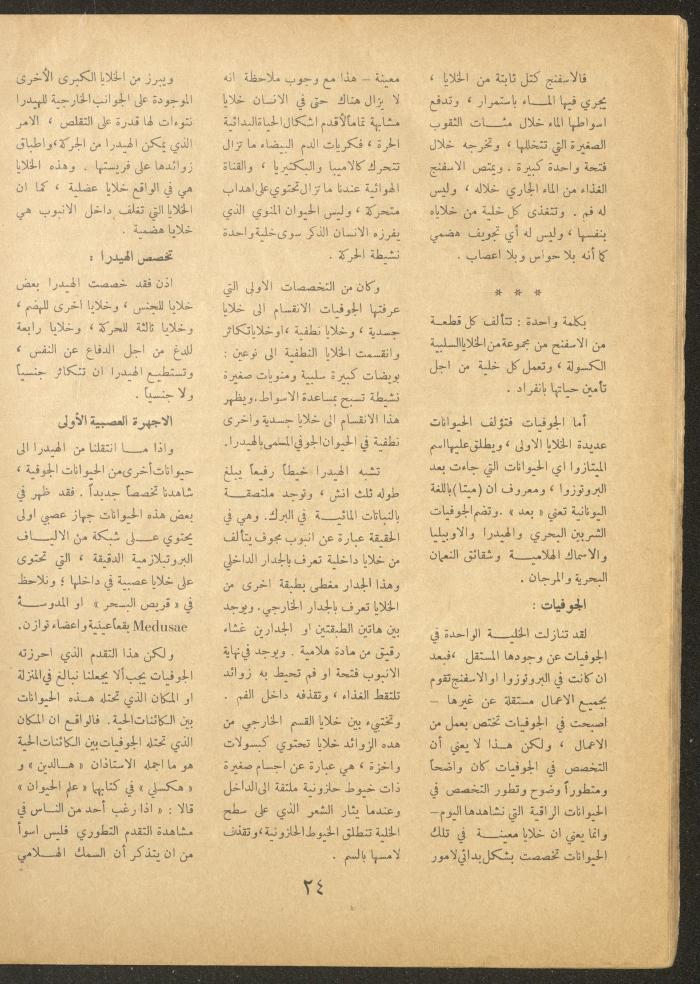 فالاسفنج كتل ثابتة من الخلايا ،
يجري فيها المـاء باستمرار ، وتدفع
اسواطها الماء خلال مئـات الثقوب
الصغيرة التي تتخللها ، وتخرجه خلال
فتحة واحدة كبيرة . ويمتص الاسفنج
الغذاء من الماء الجاري خلاله ، وليس
له فم . وتتغذى كل خلية من خلاياه
بنفسها ، وليس له أي تجويف هضمي
كما أنه بلا حواس وبلا اعصاب .
* * *
بكلمة واحدة : تتألف كل قطعـة
من الاسفنج من مجموعة من الخلايا السلبية
الكسولة ، وتعمل كل خلية من اجل
تأمين حياتها بانفراد .
أما الجوفيات فتؤلف الحيوانات
عديدة الخلايا الاولى ، ويطلق عليها اسم
الميتازوا اي الحيوانات التي جاءت بعد
البروتوزوا ، ومعروف ان (ميتا) باللغة
اليونانية تعني « بعد » . وتضم الجوفيات
الشريين البحري والهيدرا والاوبيليا
والاسماك الهلاميـة وشقائق النعمان
البحرية والمرجان .
الجوفيات :
لقد تنازلت الخليـة الواحدة في
الجوفيات عن وجودها المستقل ، فبعد
ان كانت في البروتوزوا او الاسفنج تقوم
بجميع الاعمال مستقلة عن غيرها –
اصبحت في الجوفيات تختص بعمل من
الاعمال ، ولكن هـذا لا يعني أن
التخصص في الجوفيات كان واضحاً
ومتطوراً وضوح وتطور التخصص في
الحيوانات الراقية التي نشاهدها اليوم –
وانما يعني ان خلايا معينـة في تلك
الحيوانات تخصصت بشكل بدائي لامور
معينة – هذا مع وجوب ملاحظة انه
لا يزال هناك حتى في الانسان خلايا
مشابهة تماماً لأقدم اشكال الحياة البدائية
الحرة ، فكريات الدم البيضاء ما تزال
تتحرك كالاميبا والبكتيريا ، والقناة
الهوائية عندنا ما تزال تحتوي على اهداب
متحركة ، وليس الحيوان المنوي الذي
يفرزه الانسان الذكر سوى خلية واحدة
نشيطة الحركة .
وكان من التخصصات الاولى التي
عرفتها الجوفيات الانقسام الى خلايا
جسدية ، وخلايا نطفية ، او خلايا تكاثر
وانقسمت الخلايا النطفية الى نوعين :
بويضات كبيرة سلبية ومنويات صغيرة
نشيطة تسبح بمساعدة الاسواط . ويظهر
هذا الانقسام الى خلايا جسدية واخرى
نطفية في الحيوان الجوفي المسمى بالهيدرا.
تشبه الهيدرا خيطاً رفيعاً يبلغ
طوله ثلث انش ، وتوجد ملتصقـة
بالنباتات المائيـة في البرك. وهي في
الحقيقة عبارة عن انبوب مجوف يتألف
من خلايا داخلية تعرف بالجدار الداخلي
وهذا الجدار مغطى بطبقة اخرى من
الخلايا تعرف بالجدار الخارجي . ويوجد
بين هاتين الطبقتين او الجدارين غشاء
رقيق من مادة هلامية . ويوجد في نهاية
الانبوب فتحة او فم تحيط به زوائد
تلتقط الغذاء ، وتقذفه داخل الفم .
وتختبىء بين خلايا القسم الخارجي من
هذه الزوائد خلايا تحتوي كبسولات
واخزة ، هي عبارة عن اجسام صغيرة
ذات خيوط حلزونية ملتفة الى الداخل
وعندما يثار الشعر الذي على سطح
الخلية تنطلق الخيوط الحلزونية ، وتقذف
لامسها بالسم .
ويبرز من الخلايا الكبرى الأخرى
الموجودة على الجوانب الخارجية للهيدرا
نتوءات لها قدرة على التقلص ، الامر
الذي يمكن الهيدرا من الحركة ، واطباق
زوائدها على فريستها . وهذه الخلايا
هي في الواقع خلايا عضلية ، كما ان
الخلايا التي تغلف داخل الانبوب هي
خلايا هضمية .
تخصص الهيدرا :
اذن فقد خصصت الهيدرا بعض
خلايا للجنس ، وخلايا اخرى للهضم ،
وخلايا ثالثة للحركة ، وخلايا رابعة
للدغ من اجل الدفاع عن النفس ،
وتستطيع الهيدرا ان تتكاثر جنسياً
ولا جنسياً .
الاجهزة العصبية الأولى
واذا مـا انتقلنا من الهيدرا الى
حيوانات أخرى من الحيوانات الجوفية ،
شاهدنا تخصصاً جديداً . فقد ظهر في
بعض هذه الحيوانات جهاز عصبي اولى
يحتوي عـلى شبكة من الاليـاف
البروتبلازمية الدقيقة ، التي تحتوى
على خلايا عصبية في داخلها ؛ ونلاحظ
في « قريص البـحر » او المدوسـة
Medusae بقعاً عينية واعضاء توازن.
ولكن هذا التقدم الذي احرزته
الجوفيات يجب ألا يجعلنا نبالغ في المنزلة
او المكان الذي تحتله هـذه الحيوانات
بين الكائنات الحية . فالواقع ان المكان
الذي تحتله الجوفيات بين الكائنات الحية
هو ما اجمله الاستاذان « هالدين » و
« هكسلي » في كتابهما « علم الحيوان »
قالا : « اذا رغب أحد من الناس في
مشاهدة التقدم التطوري فليس اسوأ
من ان يتذكر أن السمك الهـلامي
٢٤